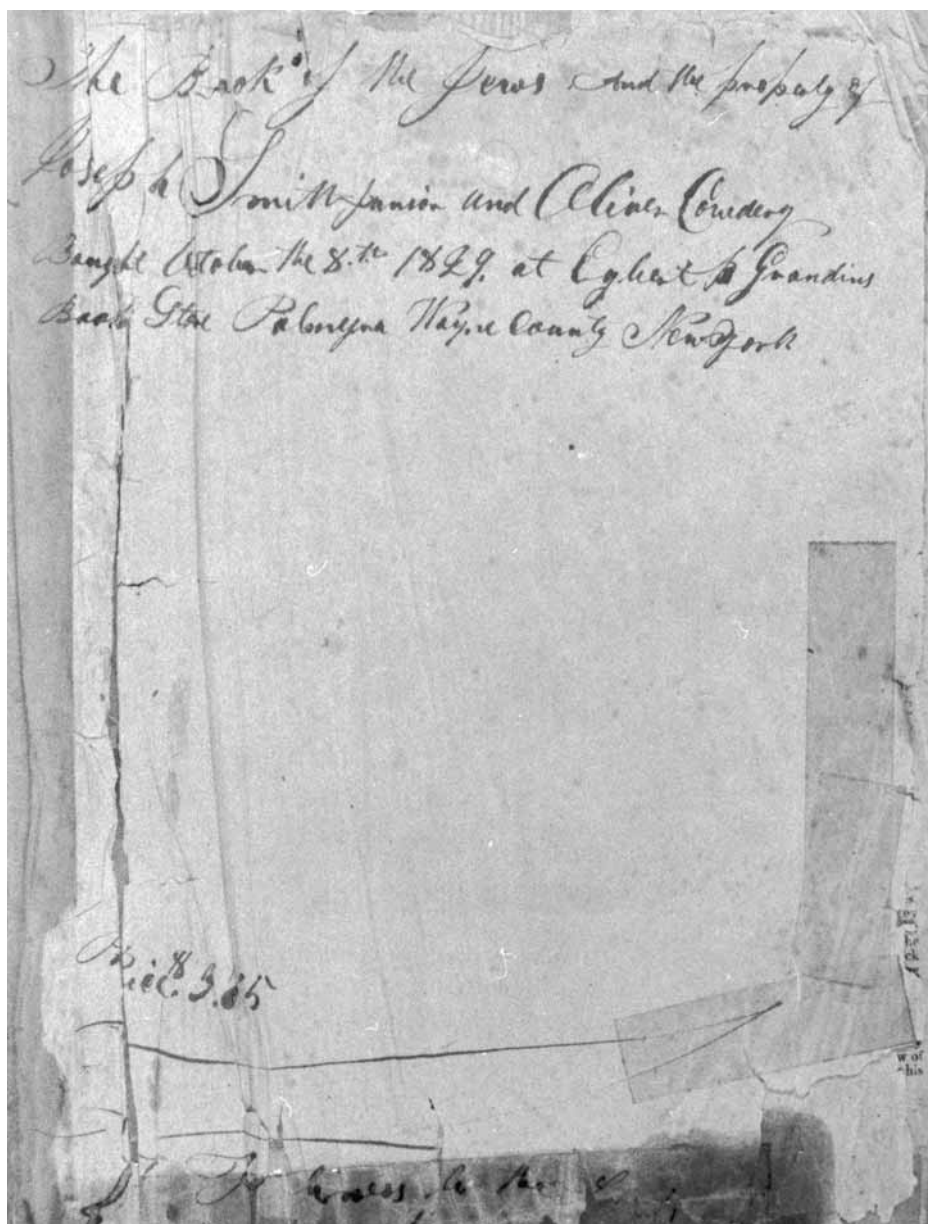 The Book of the Jews And the property of
Joseph Smith Junior and Oliver Cowdery
Bought October the 8th 1829 at Egbert B Grandins
Book Store Palmyra Wayne County New York
Price $3.75
w of
his